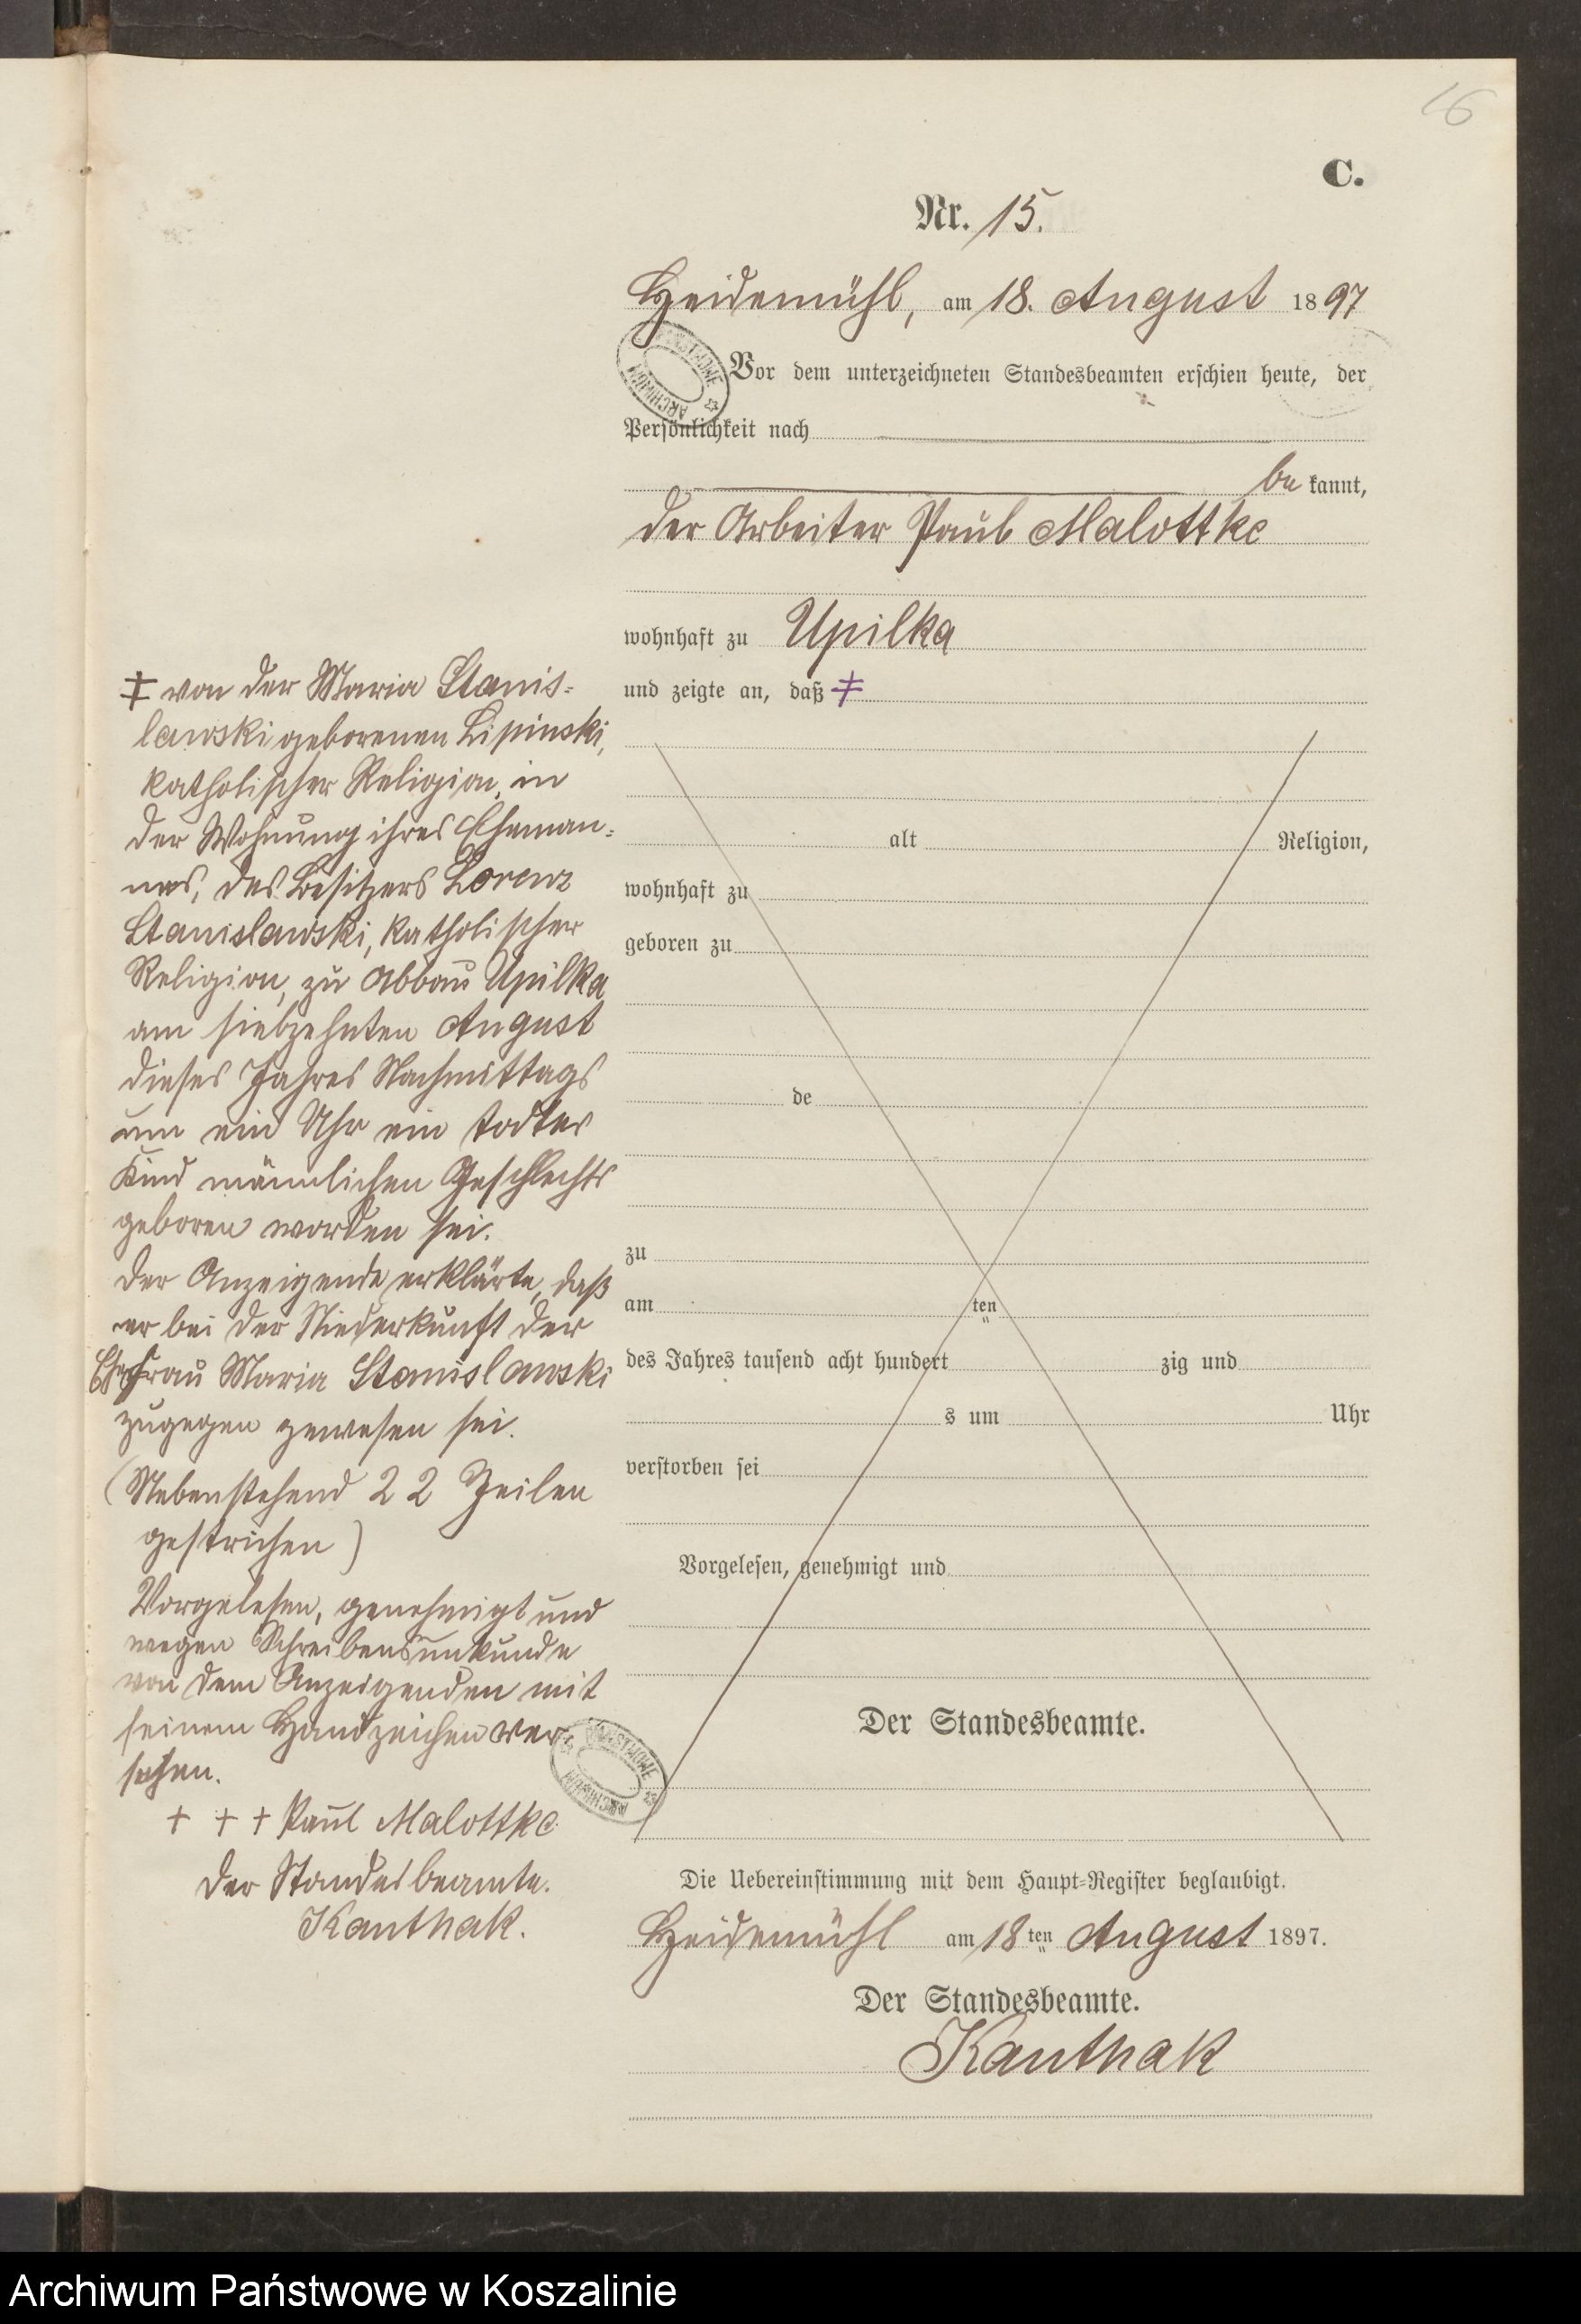 16
C.
Nr. 15.
Heidemühl, am 18. August 1897
Vor dem unterzeichneten Standesbeamten erschien heute, der
Persönlichkeit nach
be kannt,
der Arbeiter Paul Malottke
wohnhaft zu Upilka
und zeigte an, daß ‡
alt Religion,
wohnhaft zu
geboren zu
de
zu
am ten
des Jahres tausend acht hundert zig und
s um Uhr
verstorben sei
Vorgelesen, genehmigt und
Der Standesbeamte.
‡ von der Maria Stanis=
lawski geborenen Lipinski,
katholischer Religion, in
der Wohnung ihres Eheman=
nes, des Besitzers Lorenz
Stanislawski, katholischer
Religion, zu Abbau Upilka
am siebzehnten August
dieses Jahres Nachmittags
um ein Uhr ein todtes
Kind männlichen Geschlechts
geboren worden sei.
Der Anzeigende erklärte, daß
er bei der Niederkunft der
Ehefrau Maria Stanislawski
zugegen gewesen sei.
(Nebenstehend 22 Zeilen
gestrichen)
Vorgelesen, genehmigt und
wegen Schreibensunkunde
von dem Anzeigenden mit
seinem Handzeichen ver
sehen.
+ + + Paul Malottke
Der Standesbeamte.
Kanthak.
Die Uebereinstimmung mit dem Haupt=Register beglaubigt.
Heidemühl am 18ten August 1897.
Der Standesbeamte.
Kanthak
ARCHIWUM PAŃSTWOWE
ARCHIWUM PAŃSTWOWE
Archiwum Państwowe w Koszalinie